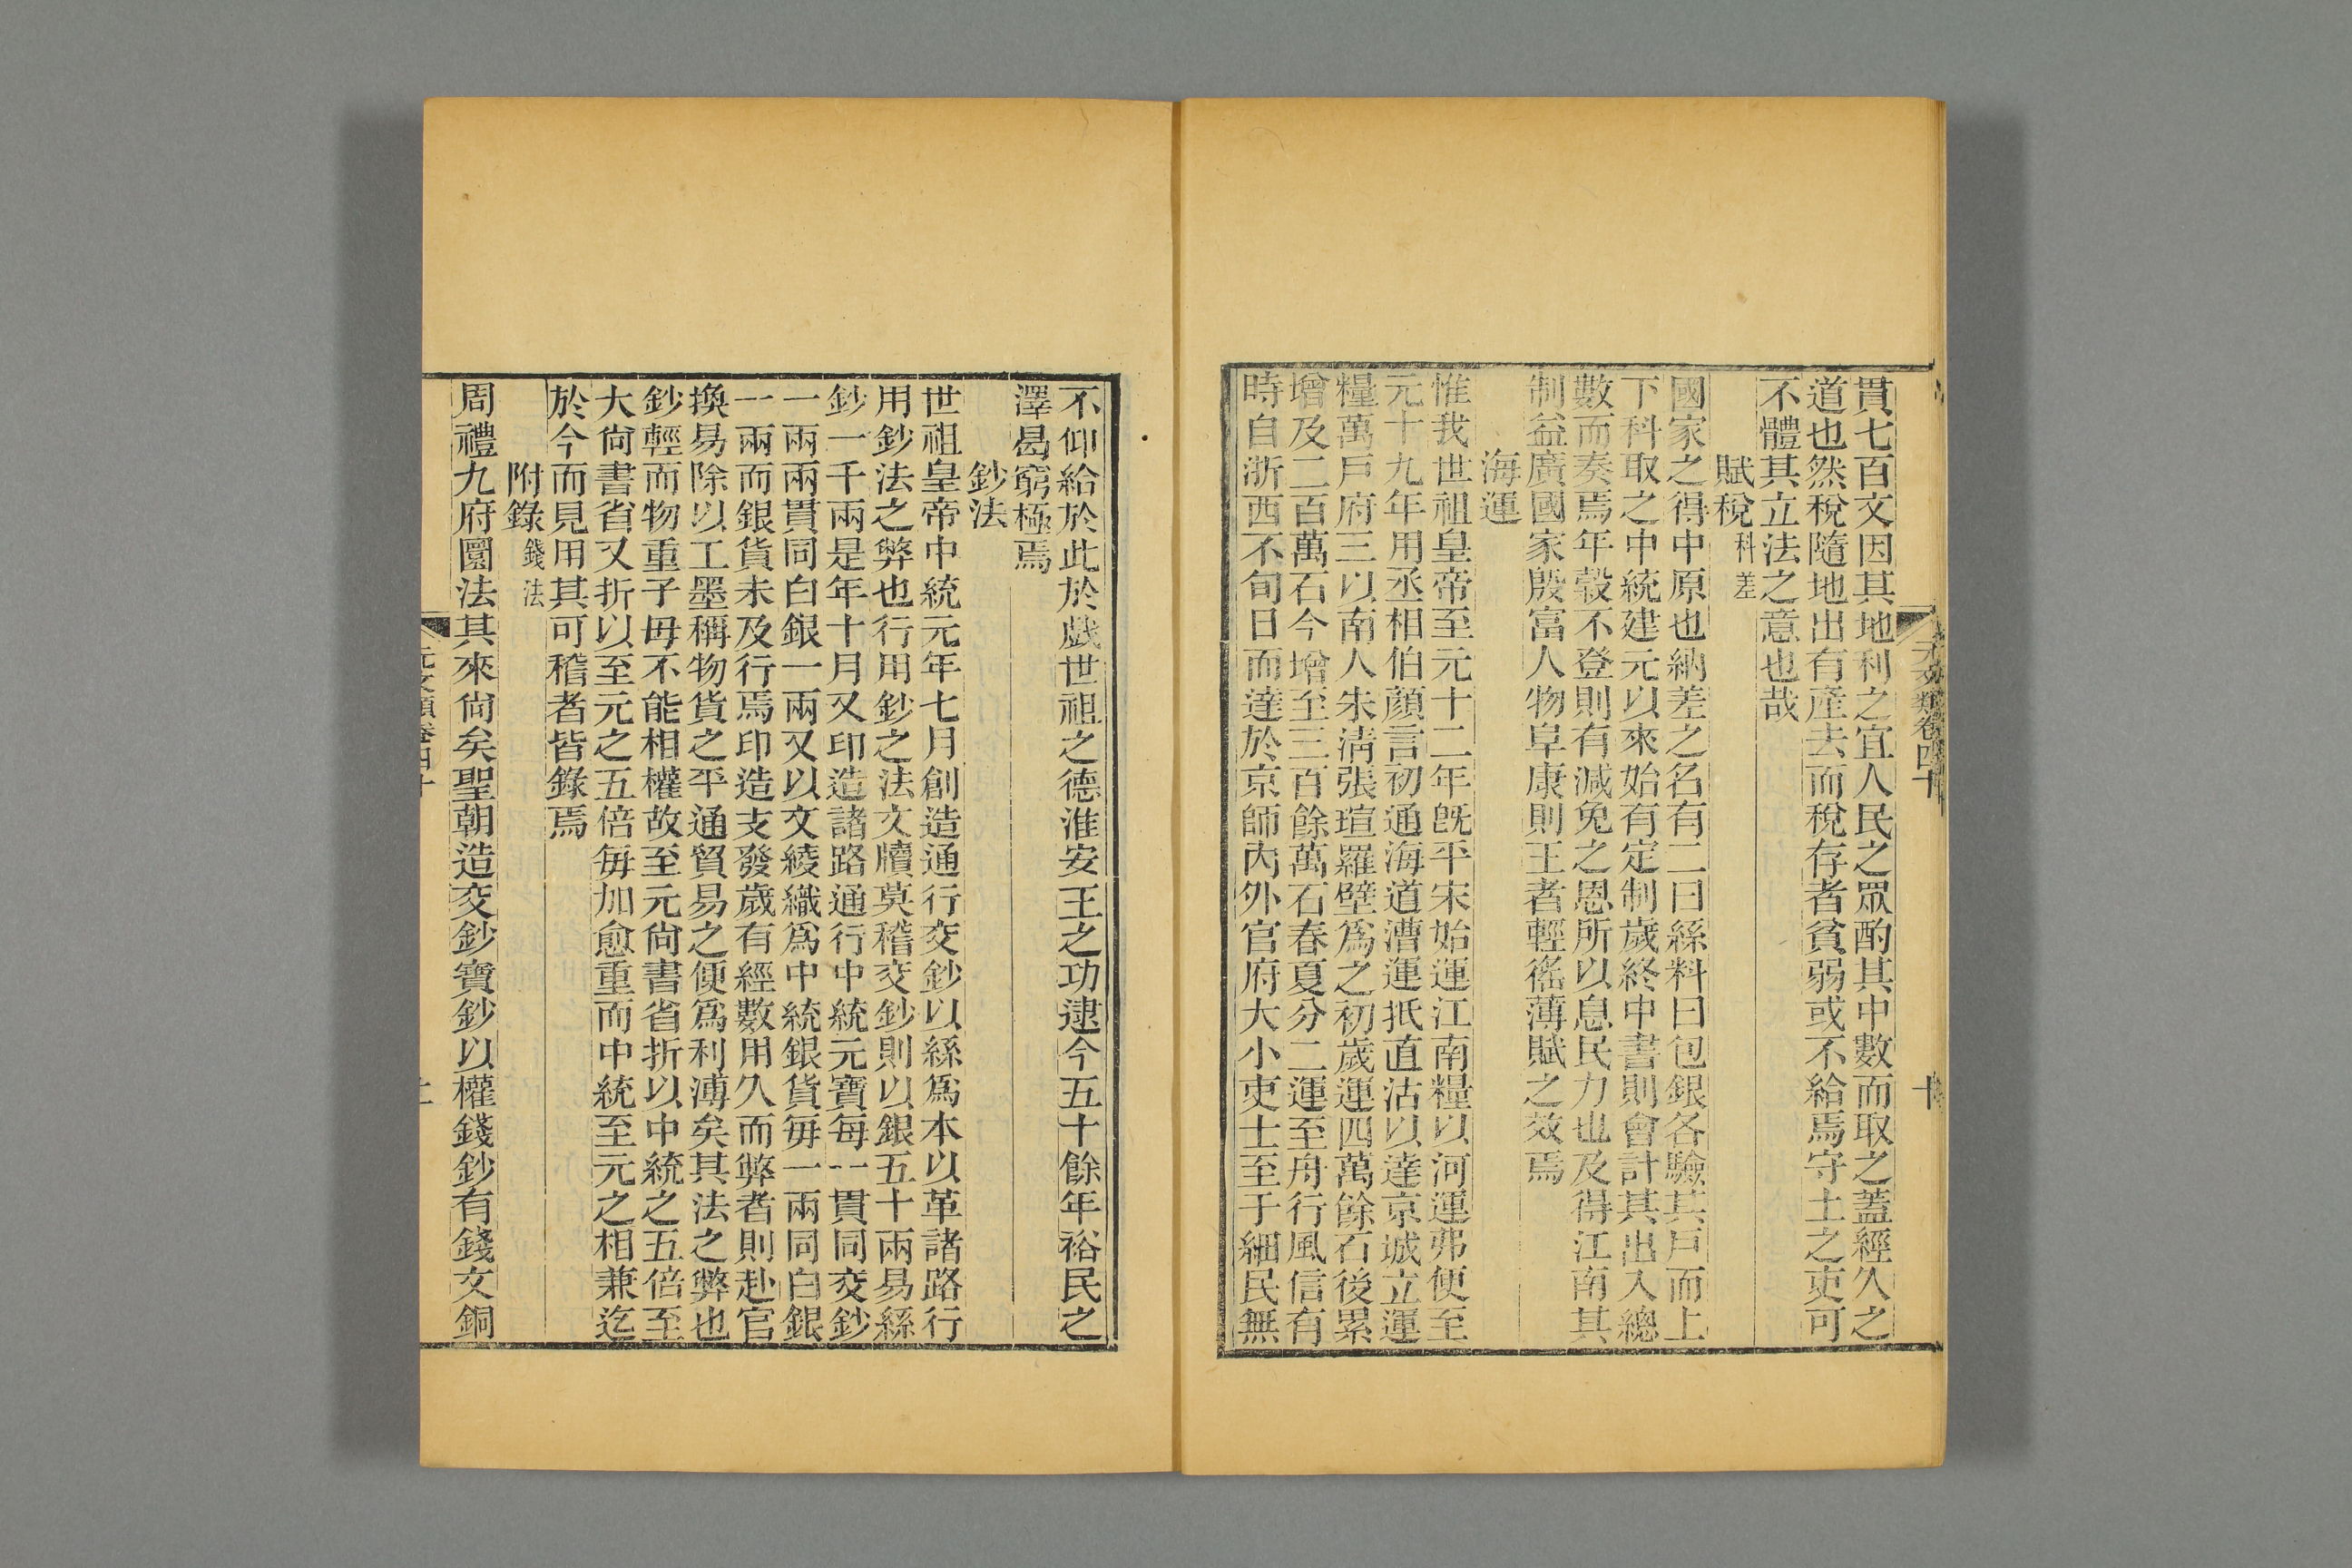 元文類卷四十
十
貫七百文因其地利之宜人民之眾酌其中數而取之蓋經久之
道也然稅隨地出有產去而稅存者貧弱或不給焉守土之吏可
不體其立法之意也哉
賦稅科差
國家之得中原也納差之名有二曰絲料曰包銀各驗其戶而上
下科取之中統建元以來始有定制歲終中書則會計其出入總
數而奏焉年穀不登則有減免之恩所以息民力也及得江南其
制益廣國家殷富人物阜康則王者輕徭薄賦之效焉
海運
惟我世祖皇帝至元十二年旣平宋始運江南糧以河運弗便至
元十九年用丞相伯顏言初通海道漕運抵直沽以達京城立運
糧萬戶府三以南人朱淸張瑄羅壁爲之初歲運四萬餘石後累
增及二百萬石今增至三百餘萬石春夏分二運至舟行風信有
時自浙西不旬日而達於京師內外官府大小吏士至于細民無
不仰給於此於戲世祖之德淮安王之功逮今五十餘年裕民之
澤曷窮極焉
鈔法
世祖皇帝中統元年七月創造通行交鈔以絲爲本以革諸路行
用鈔法之弊也行用鈔之法文牘莫稽交鈔則以銀五十兩易絲
鈔一千兩是年十月又印造諸路通行中統元寶每一貫同交鈔
一兩兩貫同白銀一兩又以文綾織爲中統銀貨每一兩同白銀
一兩而銀貨未及行焉印造支發歲有經數用久而弊者則赴官
換易除以工墨稱物貨之平通貿易之便爲利溥矣其法之弊也
鈔輕而物重子母不能相權故至元尙書省折以中統之五倍至
大尙書省又折以至元之五倍每加愈重而中統至元之相兼迄
於今而見用其可稽者皆錄焉
附錄錢法
周禮九府圜法其來尙矣聖朝造交鈔寶鈔以權錢鈔有錢文銅
元文類卷四十